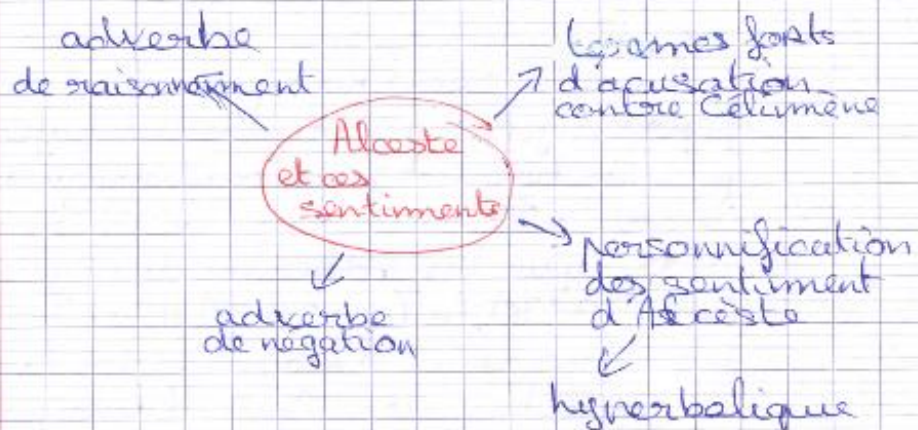 adverbe
de raisonnement
termes forts
d'acusation
contre Célimène
Alceste
et ces
sentiments
personnification
des sentiment
d'Alcèste
adverbe
de négation
hyperbolique